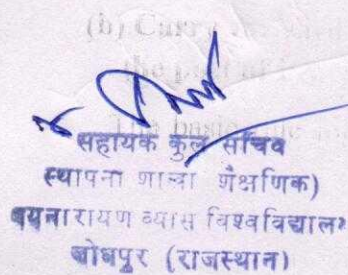 (b) Curr
the p
The basi
सहायक कुल सचिव
स्थापना शाखा शैक्षणिक)
जयनारायण व्यास विश्वविद्यालय
जोधपुर (राजस्थान)